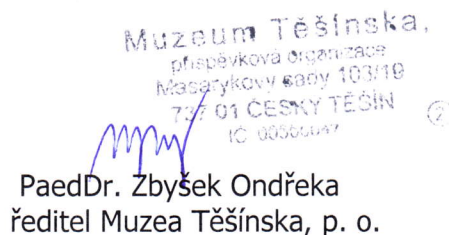 Muzeum Těšínska,
příspěvková organizace
Masarykovy sady 103/19
737 01 ČESKÝ TĚŠÍN
IČ 00506847
2
PaedDr. Zbyšek Ondřeka
ředitel Muzea Těšínska, p. o.